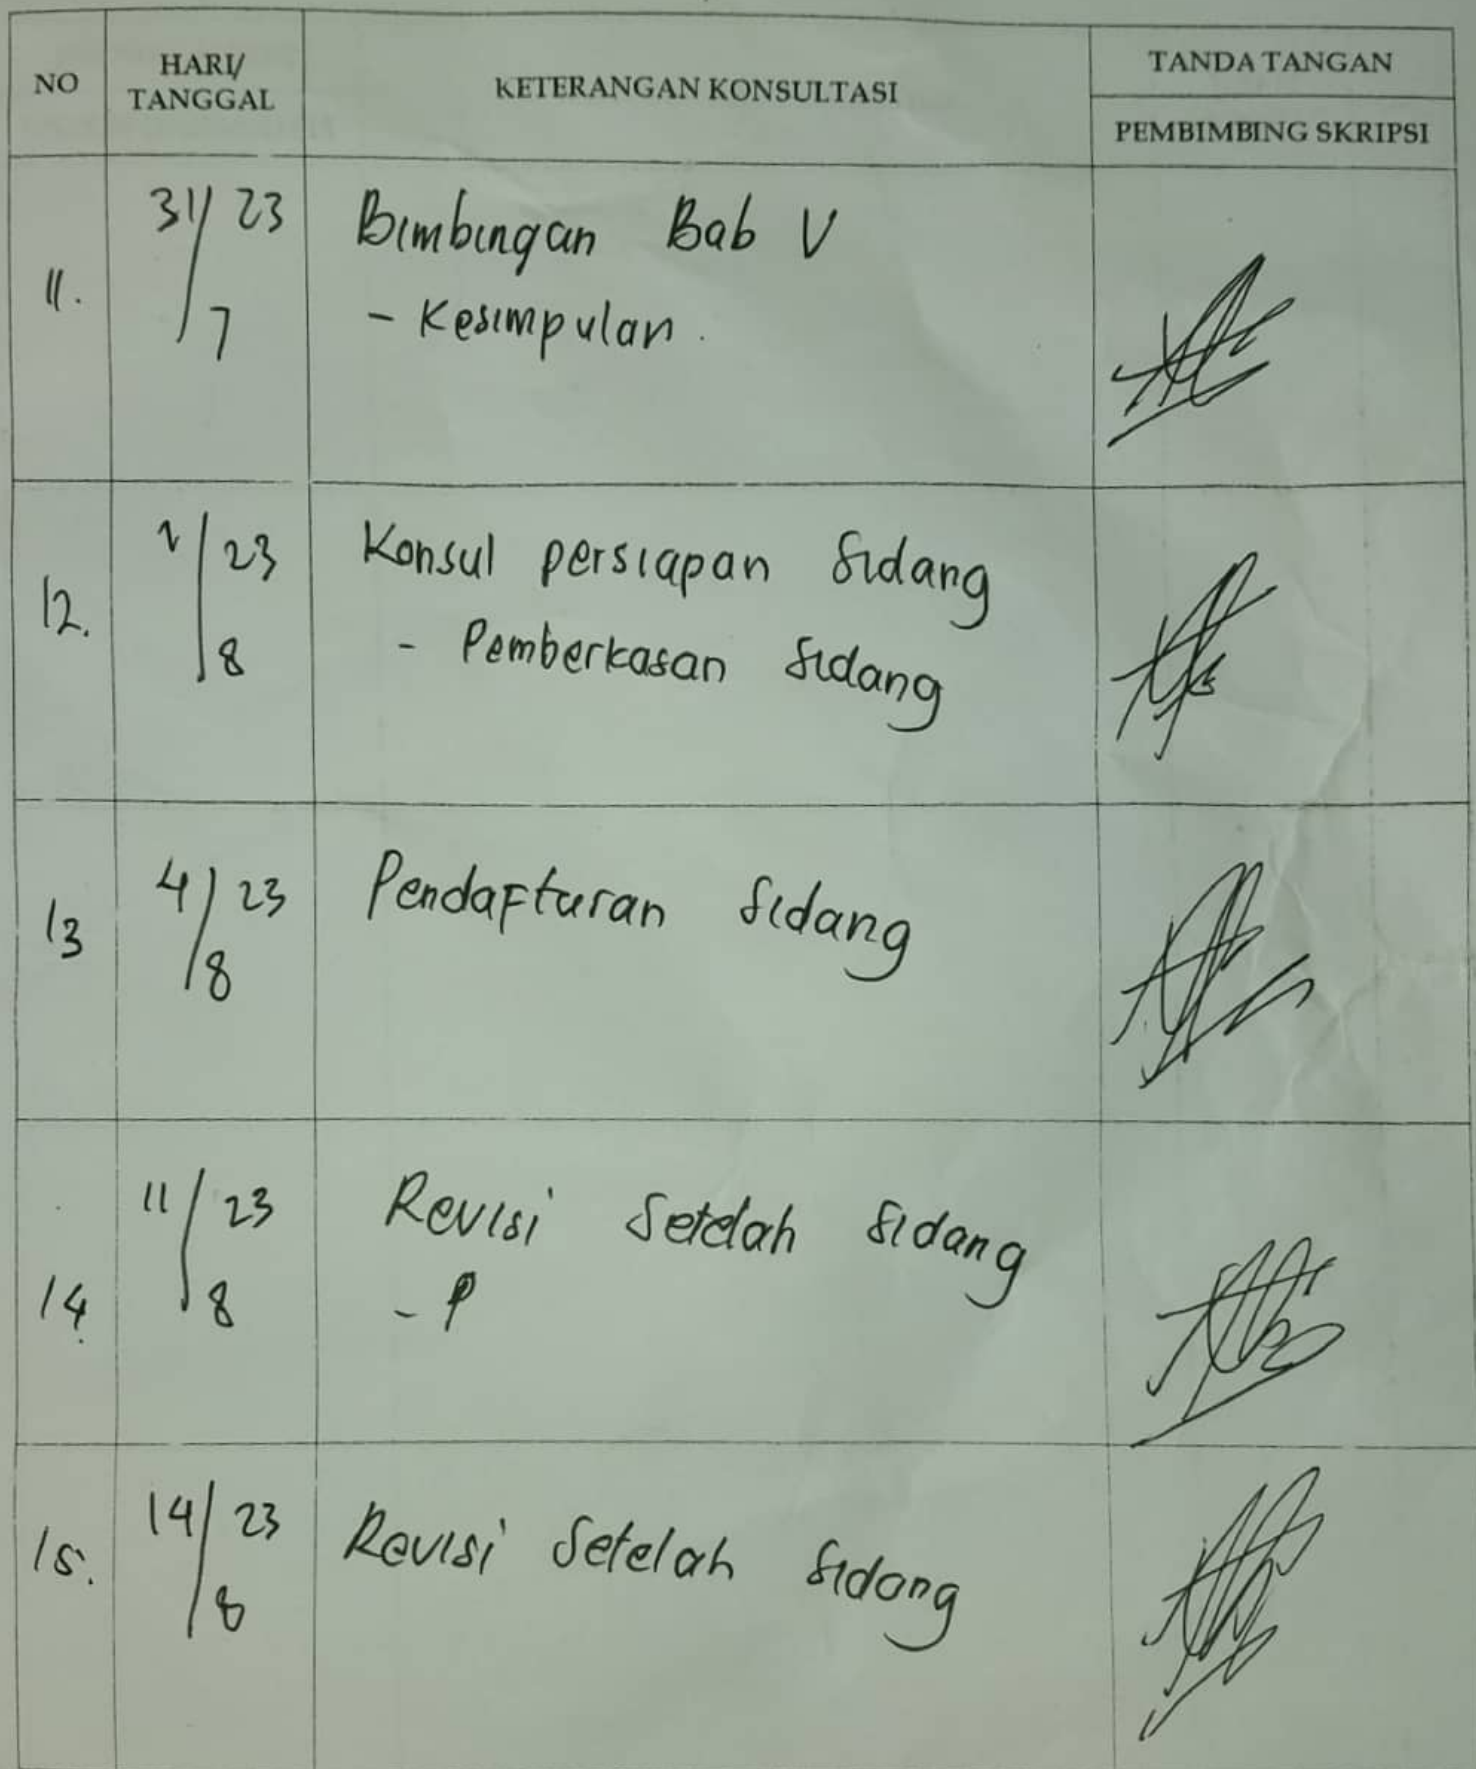 NO
HARI/
TANGGAL
KETERANGAN KONSULTASI
TANDA TANGAN
PEMBIMBING SKRIPSI
11.
31/23
/7
Bimbingan Bab V
- Kesimpulan.
12.
/23
/8
Konsul persiapan Sidang
- Pemberkasan Sidang
13
4/23
/8
Pendafturan Sidang
14.
11/23
/8
Revisi Setelah Sidang
- P
15.
14/23
/8
Revisi Setelah Sidang